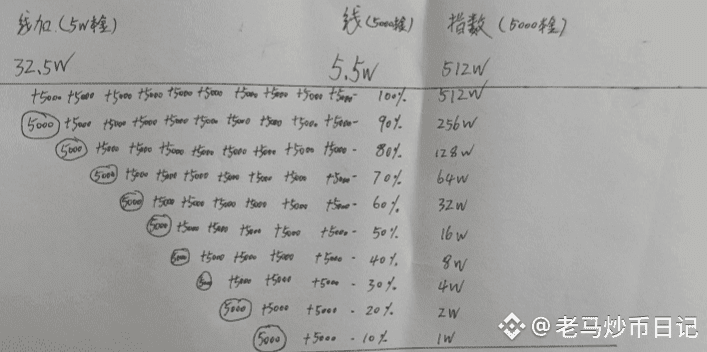 线加(5W本金) 线(5000本金) 指数(5000本金)
32.5W 5.5W 512W
+5000 +5000 +5000 +5000 +5000 +5000 +5000 +5000 +5000 +5000- 100% 512W
5000 +5000 +5000 +5000 +5000 +5000 +5000 +5000 +5000- 90% 256W
5000 +5000 +5000 +5000 +5000 +5000 +5000 +5000- 80% 128W
5000 +5000 +5000 +5000 +5000 +5000 +5000- 70% 64W
5000 +5000 +5000 +5000 +5000 +5000- 60% 32W
5000 +5000 +5000 +5000 +5000- 50% 16W
5000 +5000 +5000 +5000 - 40% 8W
5000 +5000 +5000 +5000 - 30% 4W
5000 +5000 +5000 - 20% 2W
5000 +5000 - 10% 1W
@老马炒币日记